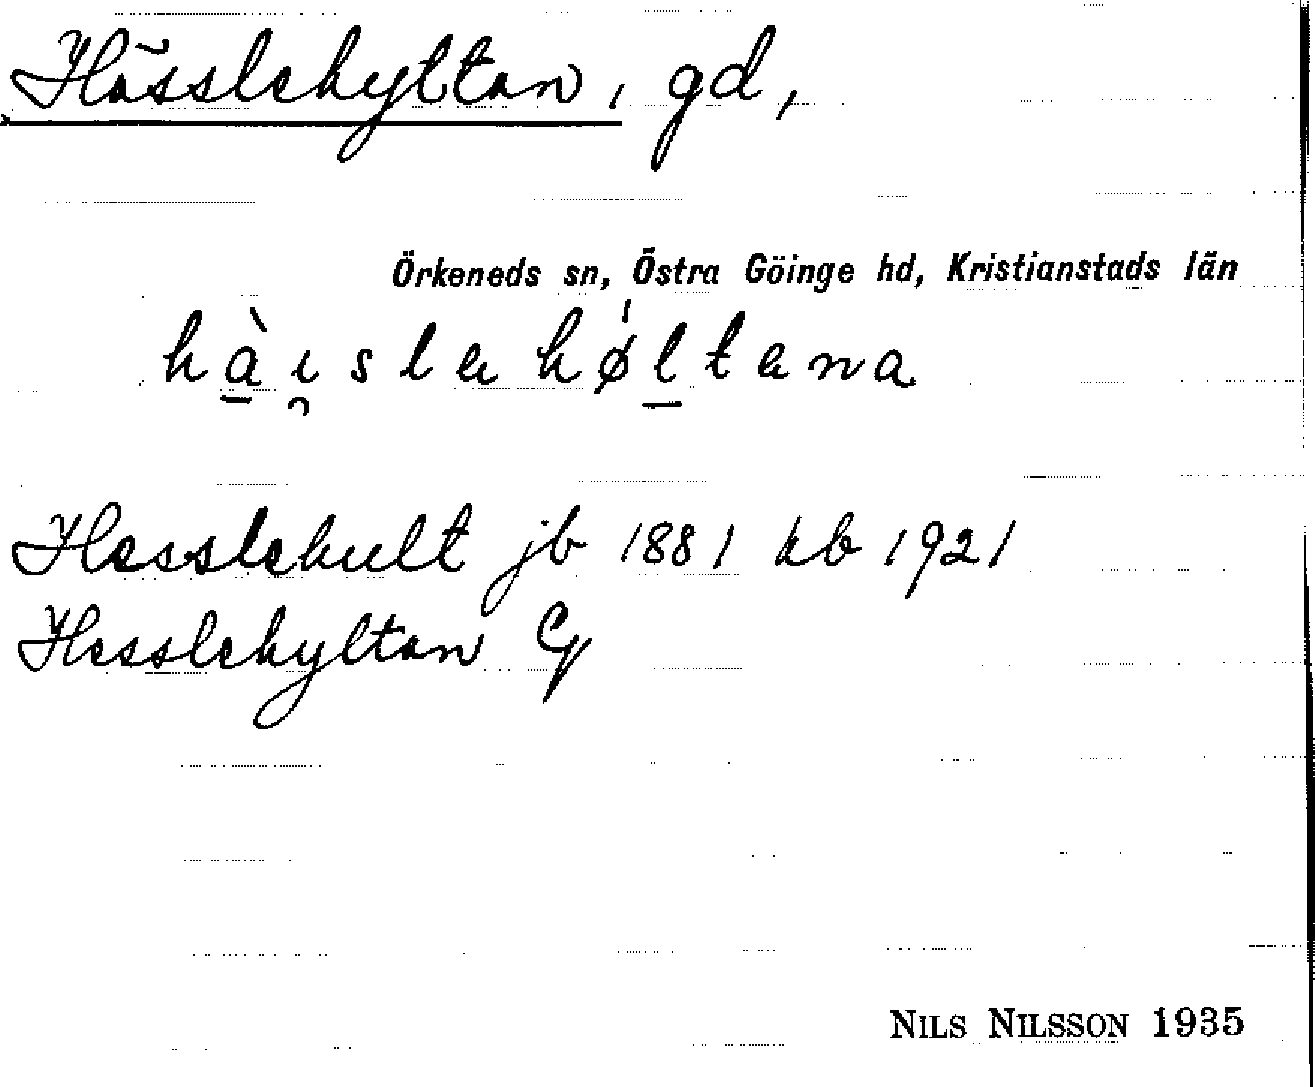 Hässlehyltan, gd,
Örkeneds sn, Östra Göinge hd, Kristianstads län
hàıslahøltana
Hesslehult jb 1881 kb 1921
Hesslehyltan
NILS NILSSON 1935